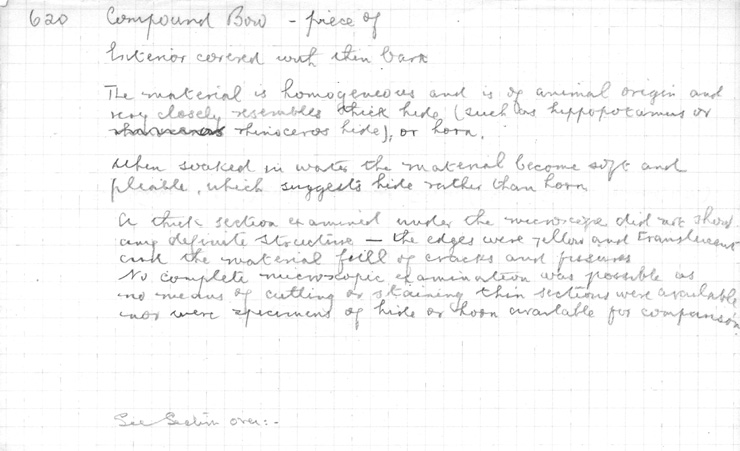 620 Compound Bow - piece of
Exterior covered with thin bark
The material is homogeneous and is of animal origin and
very closely resembles thick hide (such as hippopotamus or
rhinoceros hide), or horn.
When soaked in water the material become soft and
pliable, which suggests hide rather than horn
A thick section examined under the microscope did not show
any definite structure — the edges were yellow and translucent
and the material full of cracks and fissures
No complete microscopic examination was possible as
no means of cutting or staining thin sections were available
nor were specimens of hide or horn available for comparison.
See Section over:-